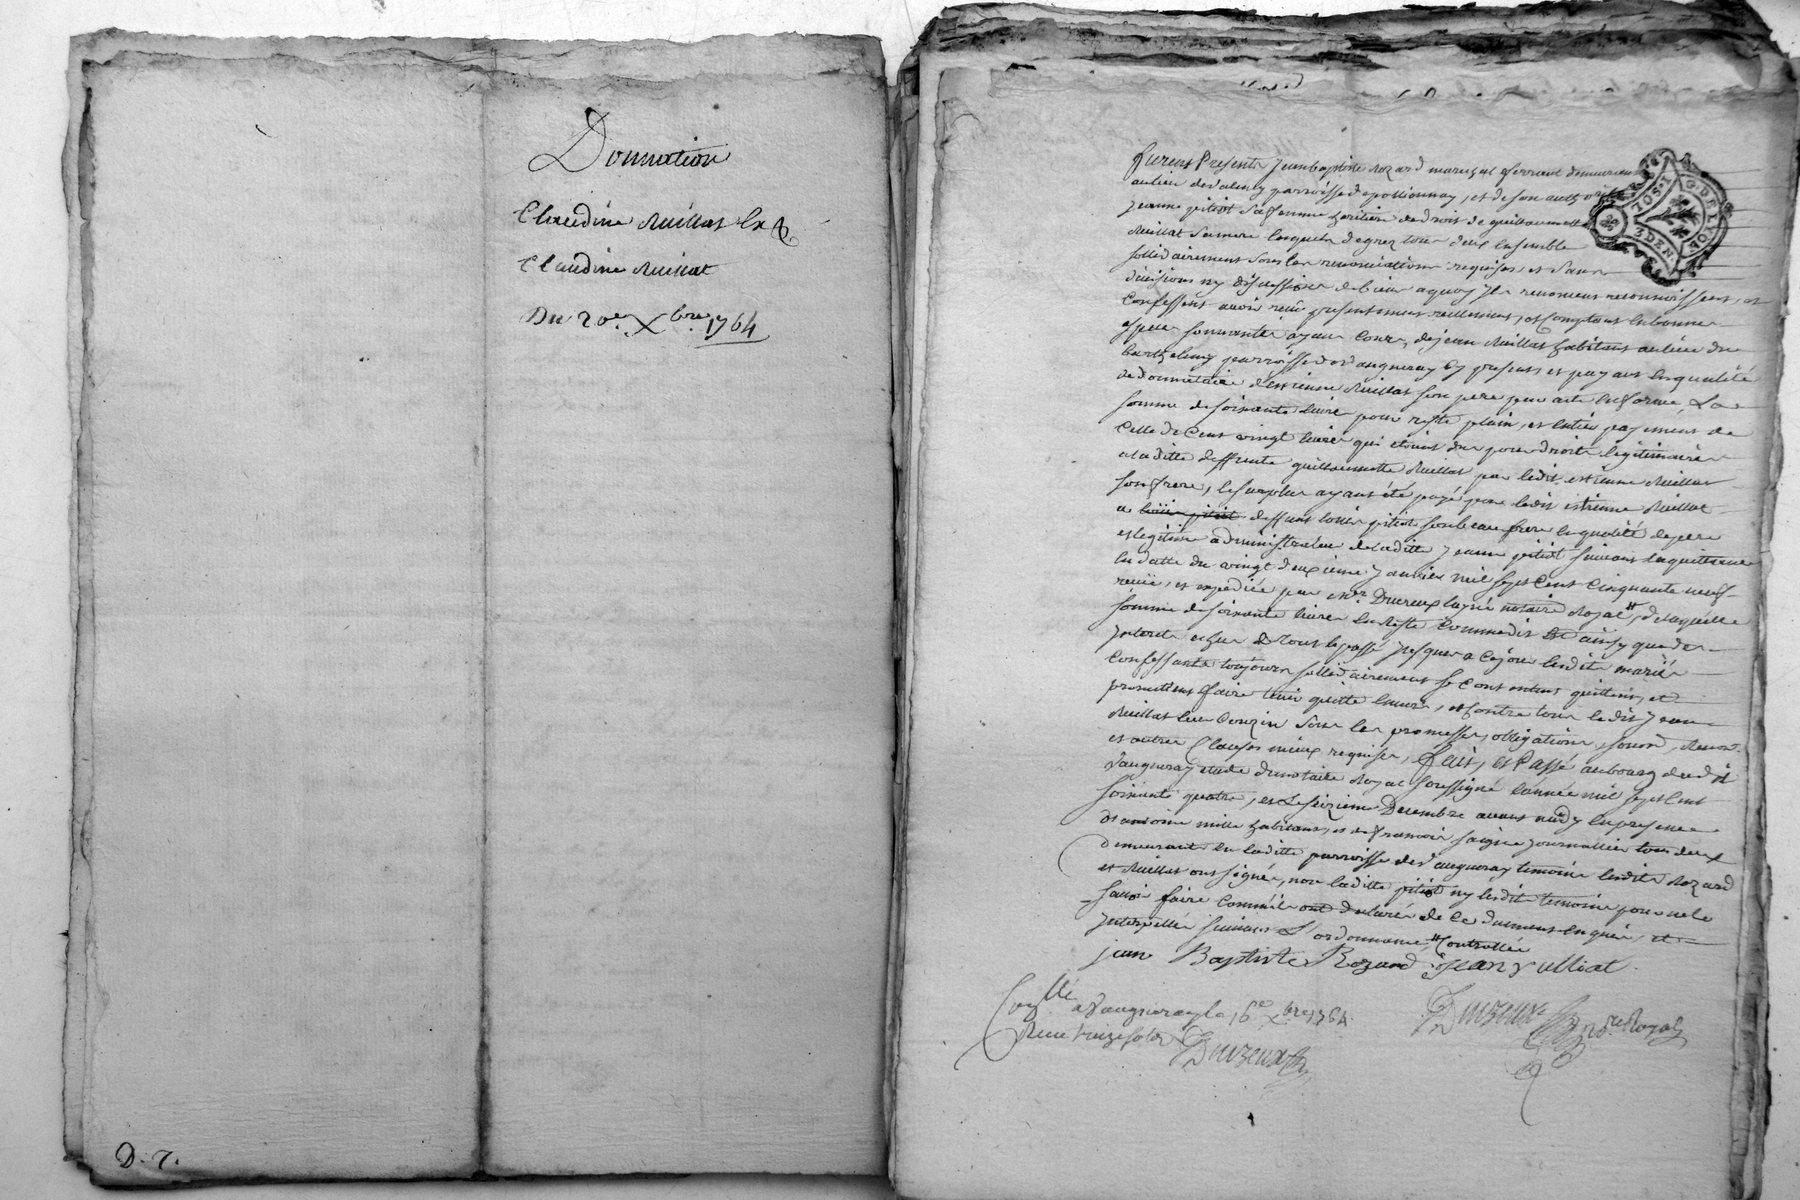 Donnation
Claudine Nuillat
Claudine Nuillat
Du 20e. Xbre. 1764
D. 7.
G. D. LYON
3 DEN
furent Presents Jean baptiste Rozard marechal ferrant demeurant
au lieu de paroisse de pollionnay, et de son authorité
Jeanne pitiot sa femme heritiere de droit de guillaumette
Nuillat sa mere lesquels de grez tous deux ensemble
sollidairement sous les renonciations requises, et sans
divisions ny discussion de biens a quoy ils renoncent reconnoissent, et
Confessent avoir reçu presentement reellement, et Comptant en bonnes
especes sonnantes ayant cours, de jean Nuillat habitant au lieu du
barthelemy parroisse de vaugneray Cy present et payant en qualité
de donnataire d'estienne Nuillat son pere par acte en forme, La
somme de soixante livres pour reste plain, et entier payement de
Celle de Cent vingt livres qui etoient dus pour droits legitimaires
a laditte deffunte guillaumette Nuillat par ledit estienne Nuillat
son frere, le surplus ayant été payé par ledit estienne Nuillat
a deffunt louis pitiot son beau frere en qualité de pere
et legitime administrateur de laditte Jeanne pitiot suivant la quittance
en datte du vingt deuxieme Janvier mil sept Cent Cinquante neuf
reçüe, et expediée par me. Ducreux layné notaire Royal, de laquelle
somme de soixante livres en reste Comme dit est ainsy que des
Interets echus de tout le passé jusques a Cejour lesdits mariés
Confessants toujours sollidairement se Contentent quittent, et
promettent faire tenir quitte envers, et Contre tous ledit Jean
Nuillat leur Couzin sous les promesses, obligations,
et autres Clauses mieux requises, fait, et Passé au bourg dudit
Vaugneray etude du notaire Royal soussigné l'année mil sept Cent
soixante quatre, et Le seizieme Decembre avant midy en presence
d'antoine mille habitant, et de françois journallier tous deux
demeurants en laditte parroisse de Vaugneray temoins lesdits Rozard
et Nuillat ont signé, non laditte pitiot ny lesdits temoins pour ne le
savoir faire Comme ils ont declaré de Ce dument enquis, et
Interpellés suivant L'ordonnance, Controllée
jean Baptiste Rozard Jean
a Vaugneray le 16e Xbre 1764
Reçu treize sols
nore Royal